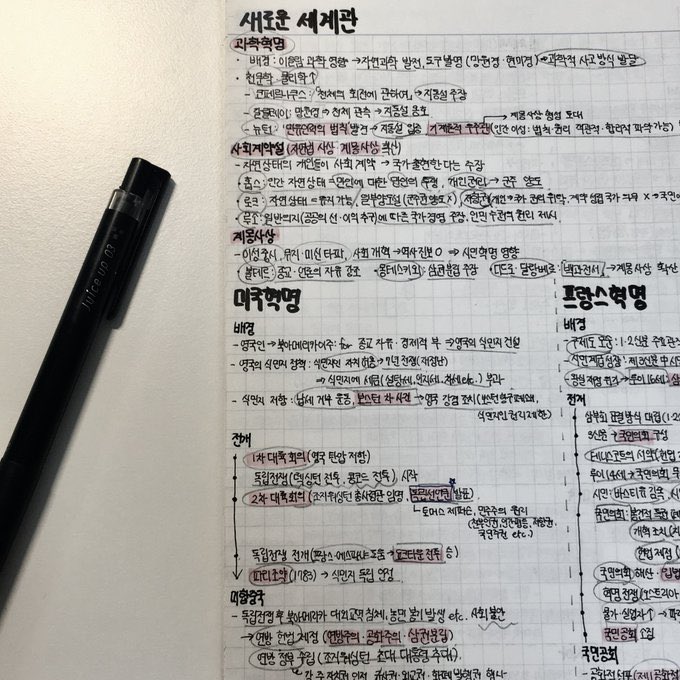 새로운 세계관
과학혁명
· 배경: 이슬람 과학 영향 → 자연과학 발전, 도구 발명 (망원경·현미경) ⇒ 과학적 사고방식 발달
· 천문학·물리학↑
- 코페르니쿠스: '천체의 회전에 관하여', → 지동설 주장
- 갈릴레이: 망원경 → 천체 관측 → 지동설 옹호
→ 계몽사상 형성 토대
- 뉴턴: '만유인력의 법칙' 발견 → 지동설 입증 기계론적 우주관 (인간 이성: 법칙·원리 객관적·합리적 파악 가능)
사회계약설 (자연법 사상 계몽사상 확산)
- 자연상태의 개인들이 사회 계약 → 국가 출현한다는 주장
· 홉스: 인간 자연상태 = 만인에 대한 만인의 투쟁, 개인 권리 → 군주 양도
· 로크: 자연상태 = 유지 가능, 일부 양도설 (군주권 양도 X), 저항권
· 루소: 일반의지 (공공의 선·이익 추구)에 따른 국가 경영 주장, 인민 주권의 원리 제시
계몽사상
- 이성 중시, 무지·미신 타파, 사회 개혁 → 역사 진보 O ⇒ 시민혁명 영향
· 볼테르: 종교·언론의 자유 강조 · 몽테스키외: 삼권분립 주장 · 디드로·달랑베르: 백과전서, → 계몽사상 확산
미국혁명
배경
- 영국인 → 북아메리카 이주: for 종교 자유·경제적 부 → 영국의 식민지 건설
- 영국의 식민지 정책: 식민지인 자치 허용 → 7년 전쟁 (재정난)
⇒ 식민지에 세금 (설탕세, 인지세, 차세 etc.) 부과
- 식민지 저항: 납세 거부 운동, 보스턴 차 사건 → 영국 강경 조치 (보스턴 항구 폐쇄,
식민지인 권리 제한)
전개
1차 대륙 회의 (영국 탄압 저항)
독립전쟁 (렉싱턴 전투, 콩코드 전투) 시작
2차 대륙회의 (조지 워싱턴 총사령관 임명, 독립선언문 발표)
→ 토머스 제퍼슨, 민주주의 원리
(천부인권, 인간평등, 저항권,
국민주권 etc.)
독립전쟁 전개 (프랑스·에스파냐 도움 → 요크타운 전투 승)
파리조약 (1783) → 식민지 독립 인정
미합중국
- 독립전쟁 후 북아메리카 대외교역 침체, 농민 봉기 발생 etc. 사회 불안
→ 연방 헌법 제정 (연방주의·공화주의·삼권분립)
연방 정부 수립 (조지 워싱턴 초대 대통령 추대)
프랑스혁명
배경
- 구제도 모순: 1·2신분
- 식민계급 성장
전개
삼부회 표결방식 대립
3신분 → 국민의회 구성
테니스코트의 서약
루이 14세 → 국민의회
시민: 바스티유 감옥
국민의회: 봉건적 특권
개혁 조치
헌법 제정
국민의회 해산·입법
혁명 전쟁 (오스트리아
물가·실업자↑ →
국민공회 소집
국민공회
Juice up 03